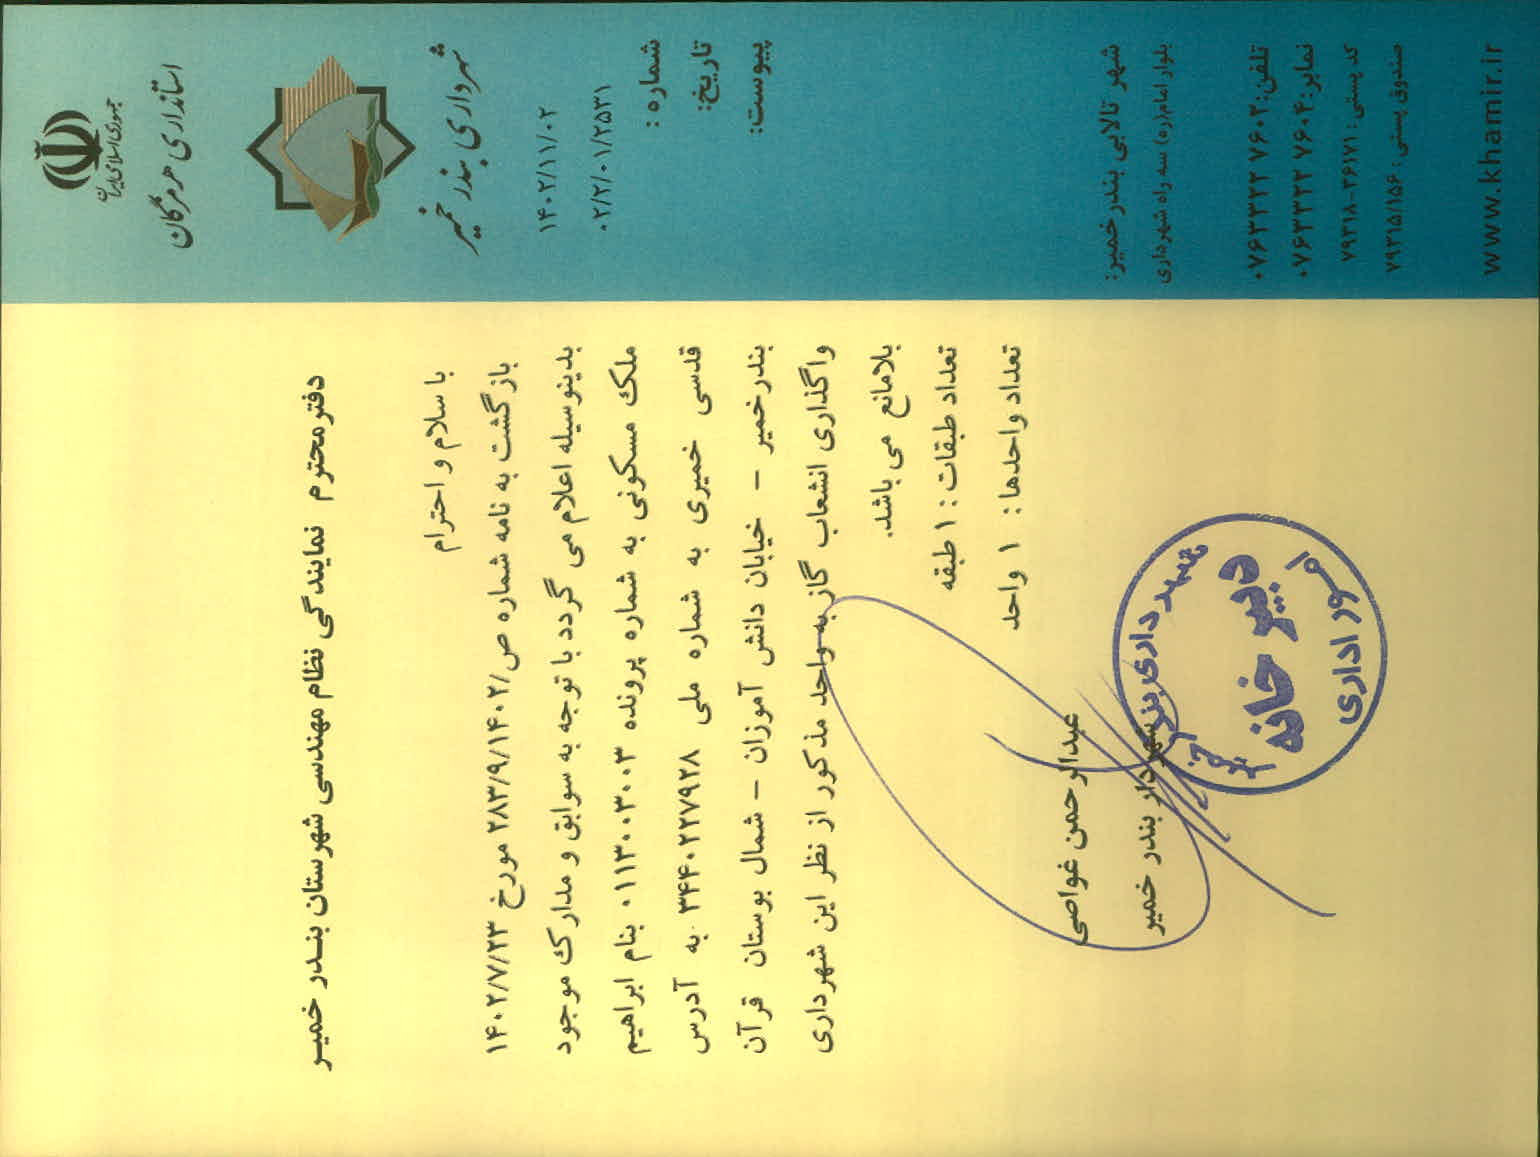 جمهوری اسلامی ایران
استانداری هرمزگان
شهرداری بندر خمیر
۱۴۰۲/۱۱/۰۲
۰۲/۲/۰۱/۲۵۳۱
شماره :
تاریخ:
پیوست:
دفتر محترم نمایندگی نظام مهندسی شهرستان بندر خمیر
با سلام و احترام
بازگشت به نامه شماره ص/۲۸۳/۹/۱۴۰۲ مورخ ۱۴۰۲/۷/۲۳
بدینوسیله اعلام می گردد با توجه به سوابق و مدارک موجود
ملک مسکونی به شماره پرونده ۰۱۱۳۰۰۳۰۰۳ بنام ابراهیم
قدسی خمیری به شماره ملی ۳۴۴۰۲۲۷۹۲۸ به آدرس
بندرخمیر – خیابان دانش آموزان – شمال بوستان قرآن
واگذاری انشعاب گاز به واحد مذکور از نظر این شهرداری
بلامانع می باشد.
تعداد طبقات : ۱ طبقه
تعداد واحدها : ۱ واحد
عبدالرحمن غواصی
شهردار بندر خمیر
شهرداری بندر خمیر
دبیرخانه
امور اداری
شهر تالابی بندرخمیر:
بلوار امام(ره) سه راه شهرداری
تلفن: ۰۷۶۳۳۲۳۷۶۰۲
نمابر: ۰۷۶۳۳۲۳۷۶۰۴
کد پستی: ۷۹۳۱۸-۳۶۱۷۱
صندوق پستی: ۷۹۳۱۵/۱۵۶
www.khamir.ir